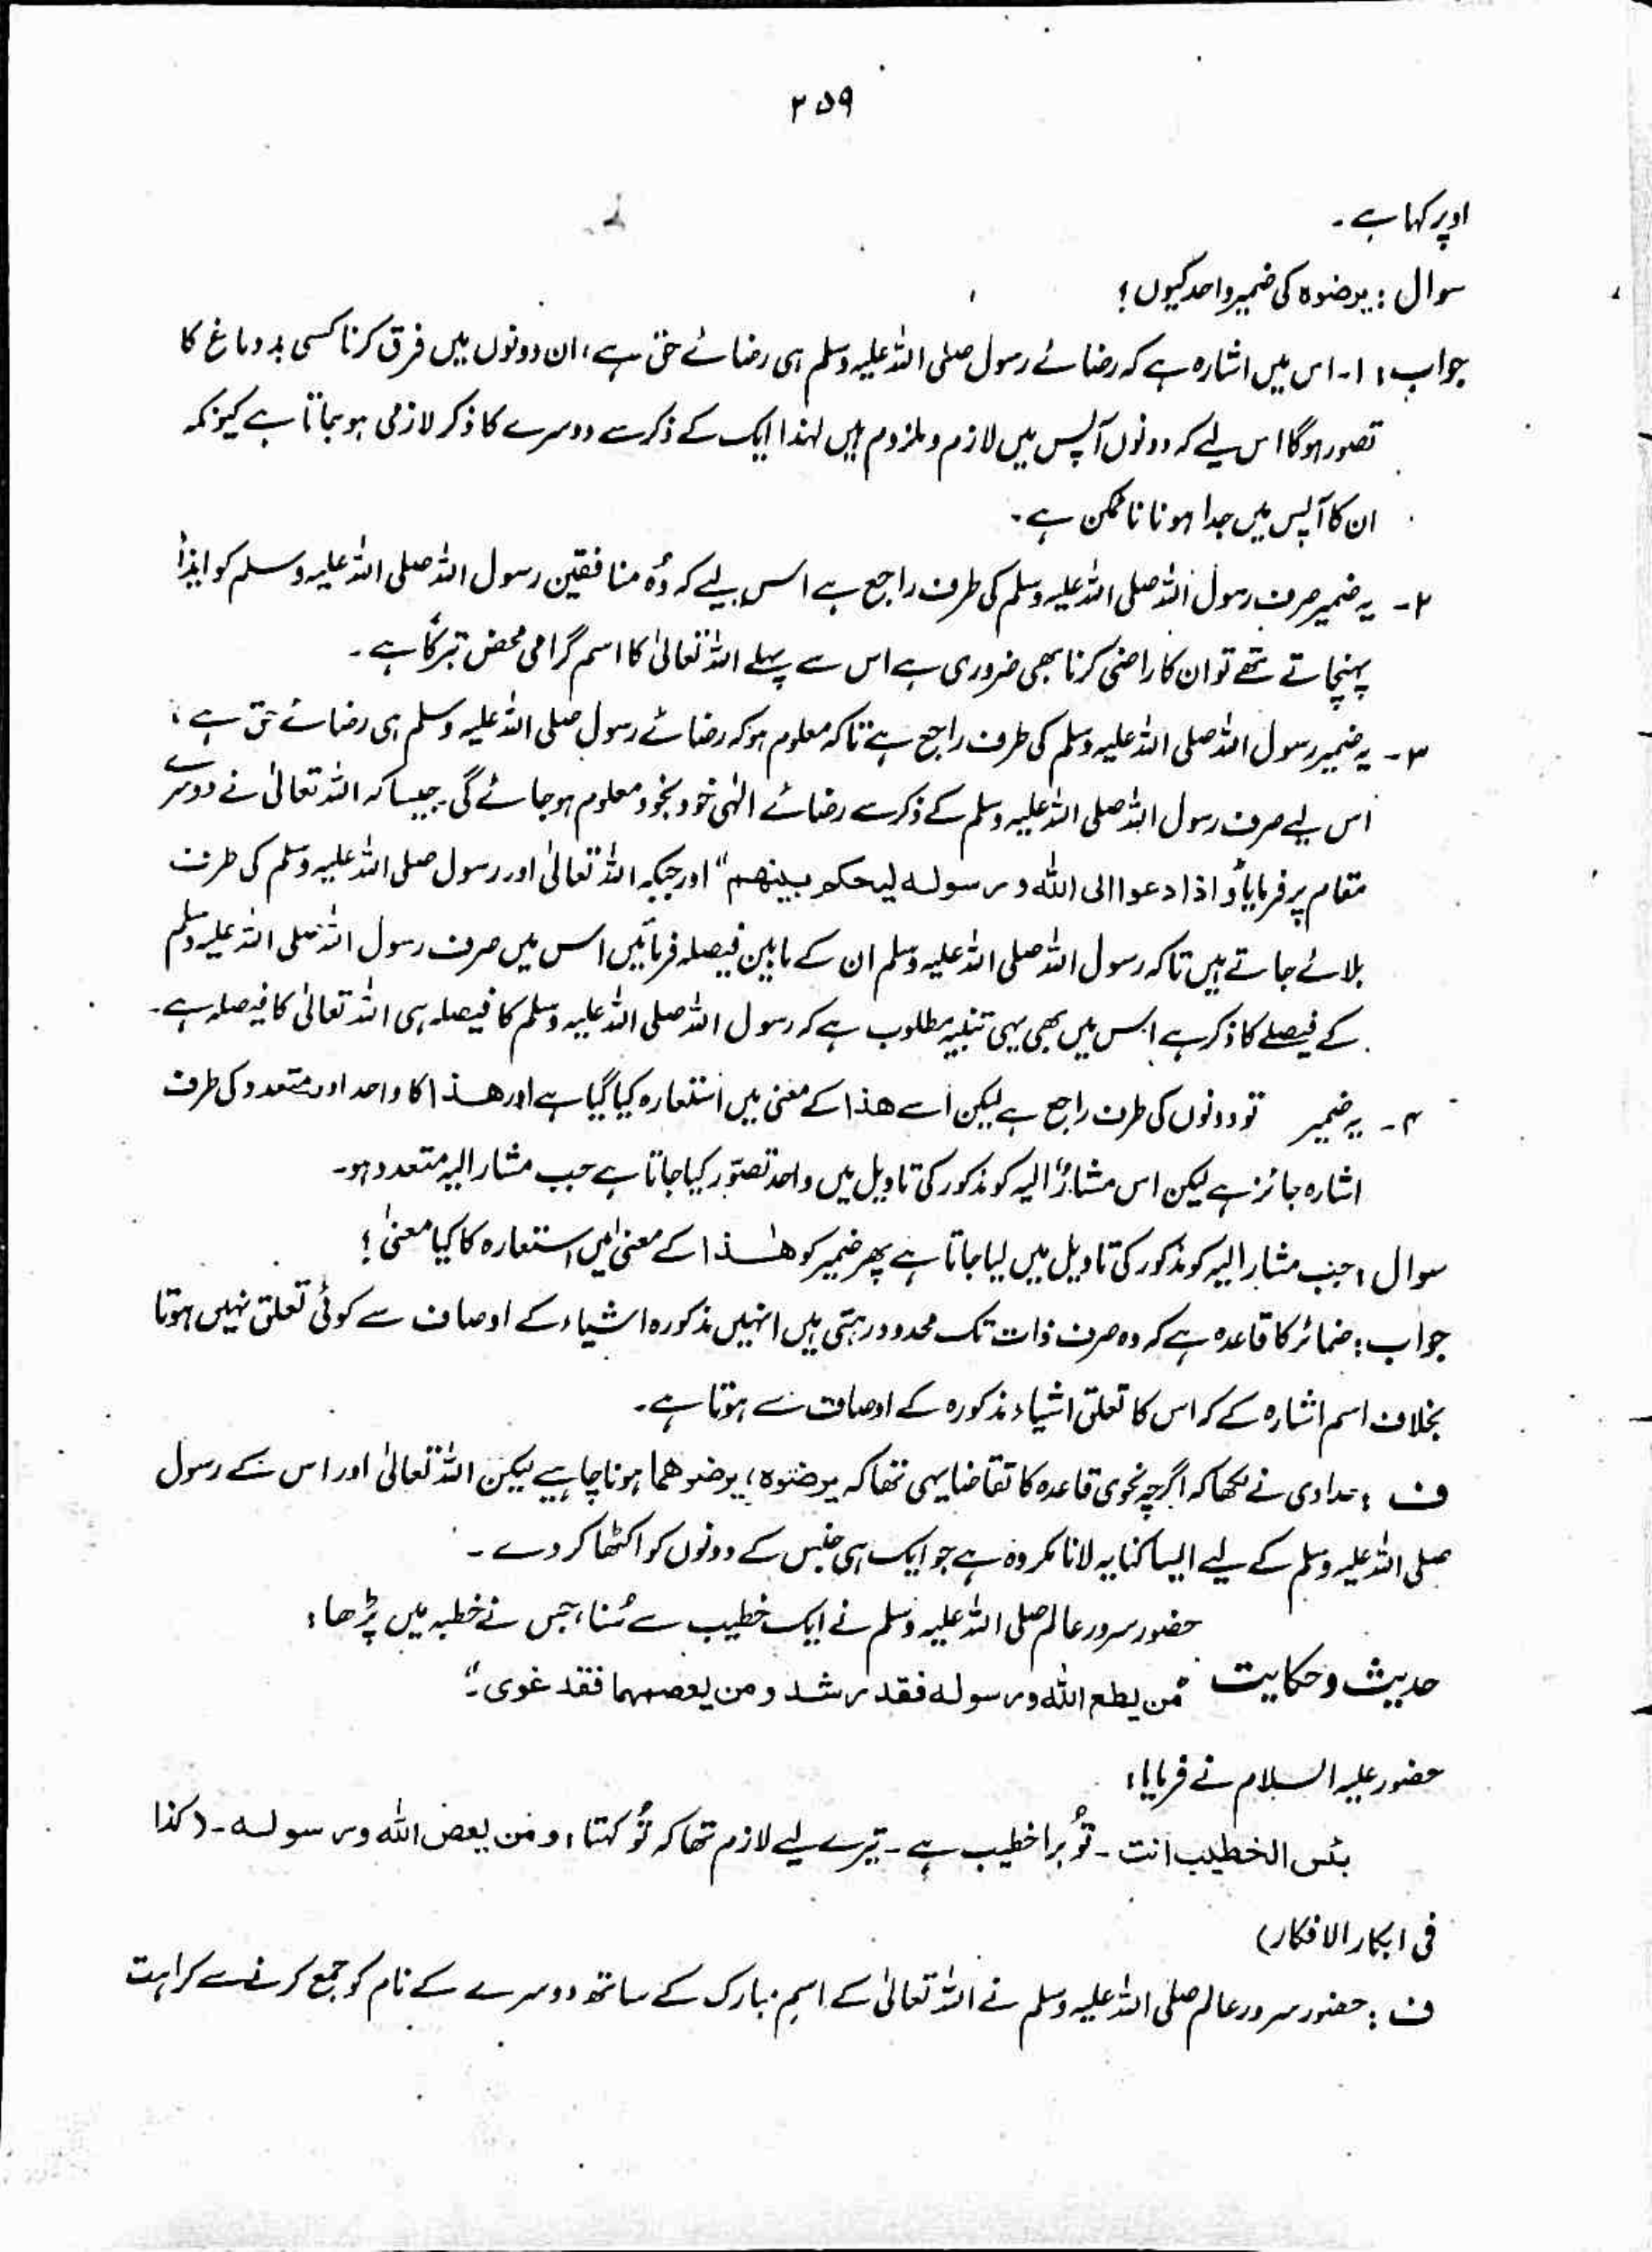 ۲۵۹
اوپر کہا ہے۔
سوال : یرضوہ کی ضمیر واحد کیوں ؟
جواب : ۱۔ اس میں اشارہ ہے کہ رضائے رسول صلی اللہ علیہ وسلم ہی رضائے حق ہے، ان دونوں میں فرق کرنا کسی بد دماغ کا
تصور ہوگا اس لیے کہ دونوں آپس میں لازم و ملزوم ہیں لہٰذا ایک کے ذکر سے دوسرے کا ذکر لازمی ہو جاتا ہے کیونکہ
ان کا آپس میں جدا ہونا ناممکن ہے۔
۲۔ یہ ضمیر صرف رسول اللہ صلی اللہ علیہ وسلم کی طرف راجع ہے اس لیے کہ وُہ منافقین رسول اللہ صلی اللہ علیہ وسلم کو ایذأ
پہنچاتے تھے تو ان کا راضی کرنا بھی ضروری ہے اس سے پہلے اللہ تعالیٰ کا اسم گرامی محض تبرکاً ہے۔
۳۔ یہ ضمیر رسول اللہ صلی اللہ علیہ وسلم کی طرف راجع ہے تاکہ معلوم ہو کہ رضائے رسول صلی اللہ علیہ وسلم ہی رضائے حق ہے،
اس لیے صرف رسول اللہ صلی اللہ علیہ وسلم کے ذکر سے رضائے الٰہی خود بخود معلوم ہو جائے گی۔ جیسا کہ اللہ تعالیٰ نے دوسرے
مقام پر فرمایا "و اذا دعوا الی اللہ و رسولہ لیحکم بینھم" اور جبکہ اللہ تعالیٰ اور رسول صلی اللہ علیہ وسلم کی طرف
بلائے جاتے ہیں تاکہ رسول اللہ صلی اللہ علیہ وسلم ان کے مابین فیصلہ فرمائیں اس میں صرف رسول اللہ صلی اللہ علیہ وسلم
کے فیصلے کا ذکر ہے اس میں بھی یہی تنبیہ مطلوب ہے کہ رسول اللہ صلی اللہ علیہ وسلم کا فیصلہ ہی اللہ تعالیٰ کا فیصلہ ہے۔
۴۔ یہ ضمیر تو دونوں کی طرف راجع ہے لیکن اسے ھذا کے معنی میں استعارہ کیا گیا ہے اور ھذا کا واحد اور متعدد کی طرف
اشارہ جائز ہے لیکن اس مشارٌ الیہ کو مذکور کی تاویل میں واحد تصوّر کیا جاتا ہے جب مشار الیہ متعدد ہو۔
سوال : جب مشار الیہ کو مذکور کی تاویل میں لیا جاتا ہے پھر ضمیر کو ھٰذا کے معنیٰ میں استعارہ کا کیا معنیٰ ؟
جواب : ضمائر کا قاعدہ ہے کہ وہ صرف ذات تک محدود رہتی ہیں انہیں مذکورہ اشیاء کے اوصاف سے کوئی تعلق نہیں ہوتا
بخلاف اسم اشارہ کے کہ اس کا تعلق اشیاء مذکورہ کے اوصاف سے ہوتا ہے۔
ف : حدادی نے لکھا کہ اگرچہ نحوی قاعدہ کا تقاضا یہی تھا کہ یرضوہ ؛ یرضوھما ہونا چاہیے لیکن اللہ تعالیٰ اور اس کے رسول
صلی اللہ علیہ وسلم کے لیے ایسا کنایہ لانا مکروہ ہے جو ایک ہی جنس کے دونوں کو اکٹھا کر دے ۔
حضور سرور عالم صلی اللہ علیہ وسلم نے ایک خطیب سے سُنا ، جس نے خطبہ میں پڑھا :
حدیث و حکایت "من یطع اللہ و رسولہ فقد رشد و من یعصھما فقد غوی۔"
حضور علیہ السلام نے فرمایا :
بئس الخطیب انت ۔ تُو برا خطیب ہے ۔ تیرے لیے لازم تھا کہ تُو کہتا : و من یعص اللہ و رسولہ ۔ (کذا
فی ابکار الافکار)
ف : حضور سرور عالم صلی اللہ علیہ وسلم نے اللہ تعالیٰ کے اسمِ مبارک کے ساتھ دوسرے کے نام کو جمع کرنے سے کراہت